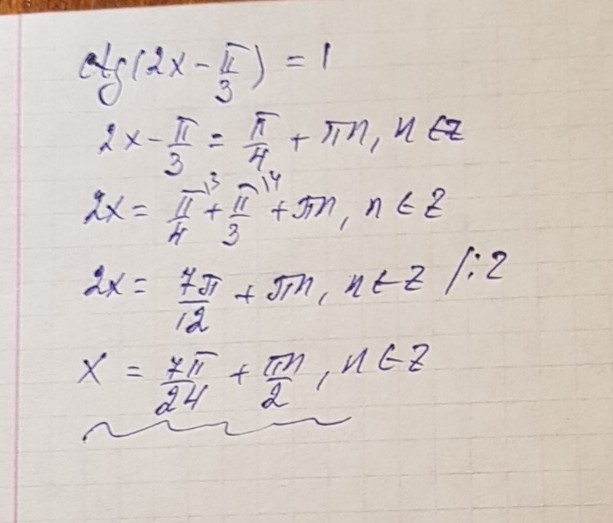 ctg(2x - π/3) = 1
2x - π/3 = π/4 + πn, n ∈ Z
2x = π/4 \3 + π/3 \4 + πn, n ∈ Z
2x = 7π/12 + πn, n ∈ Z /:2
x = 7π/24 + πn/2, n ∈ Z